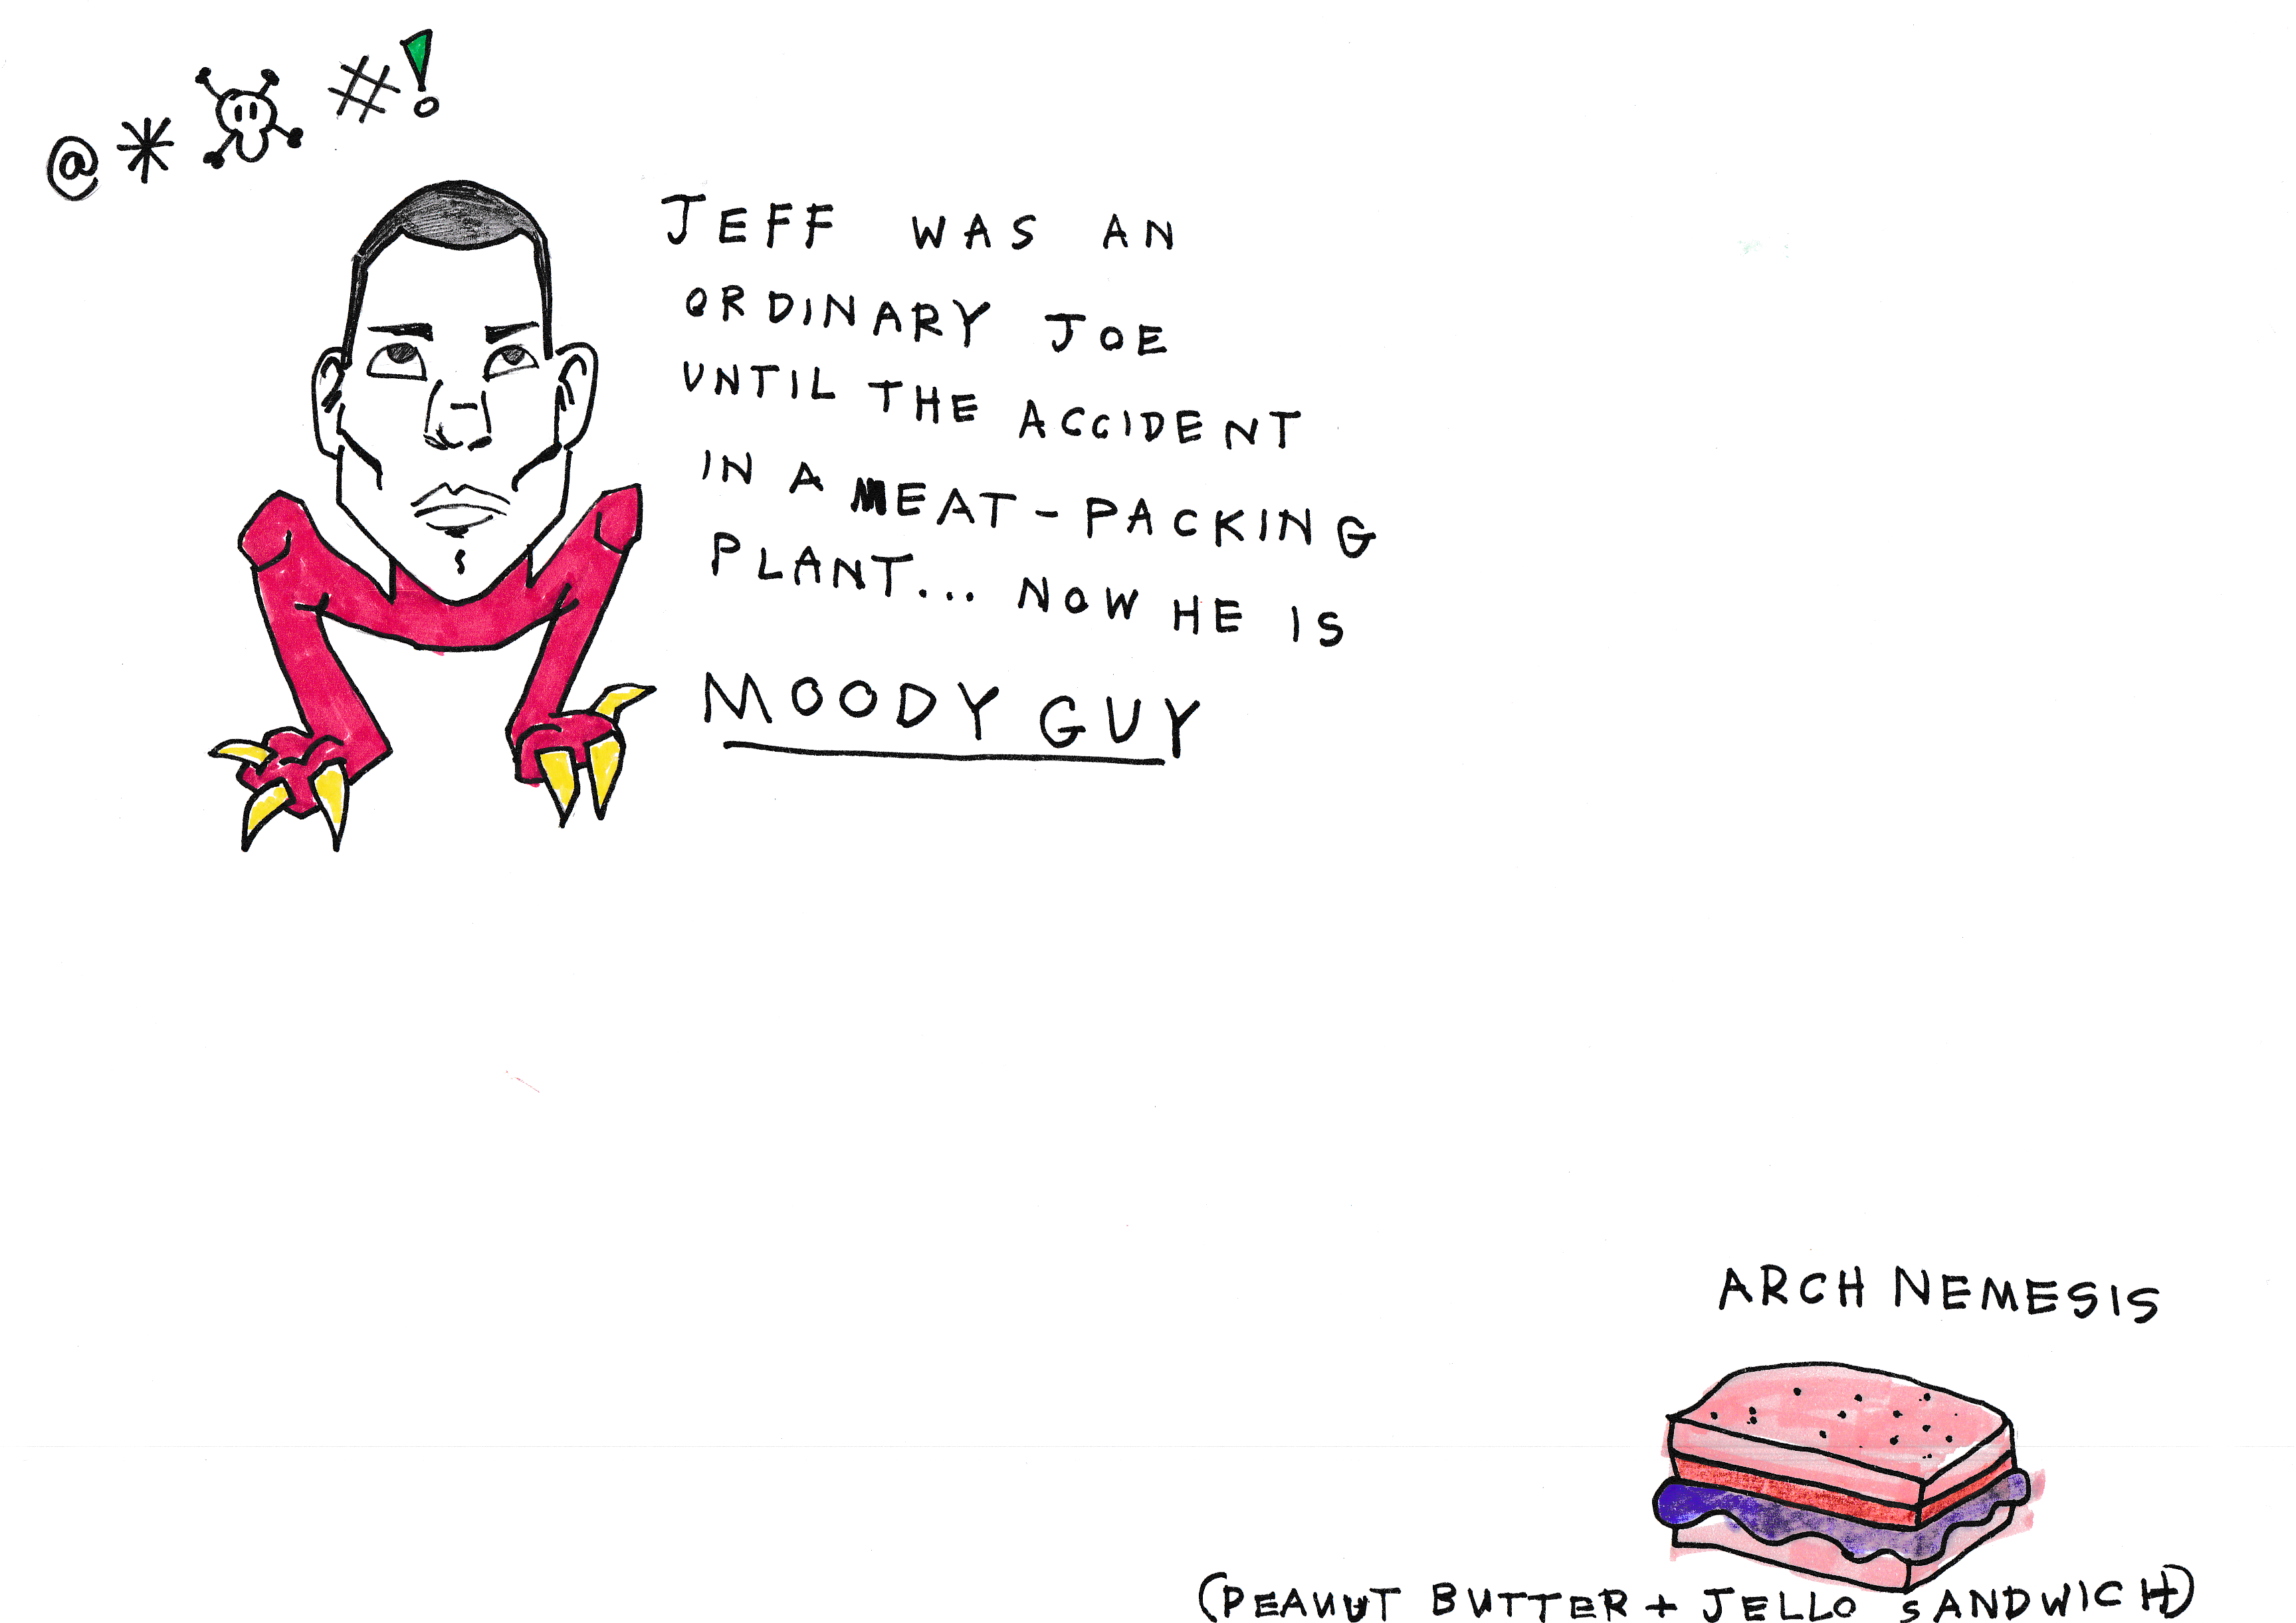 @*☠#!
JEFF WAS AN
ORDINARY JOE
UNTIL THE ACCIDENT
IN A MEAT-PACKING
PLANT... NOW HE IS
MOODY GUY
ARCH NEMESIS
(PEANUT BUTTER + JELLO SANDWICH)